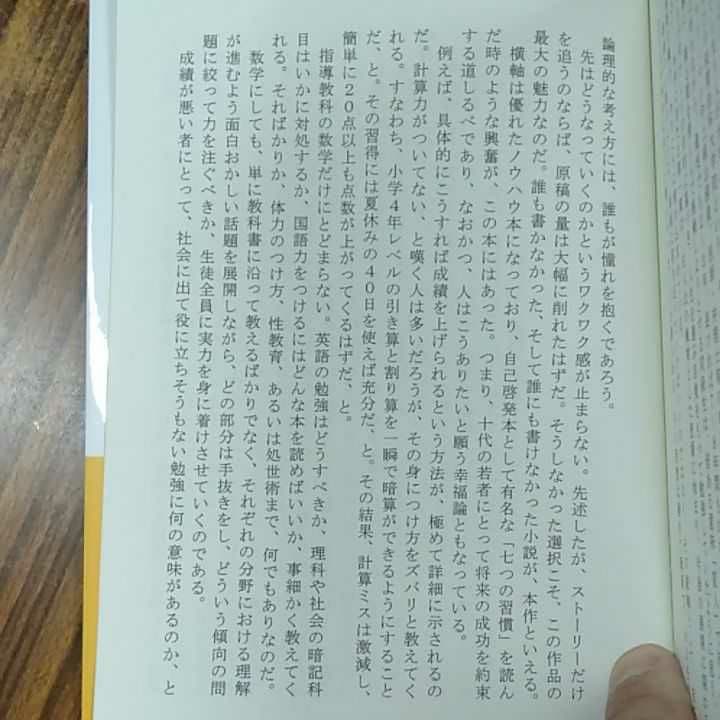 論理的な考え方には、誰もが憧れを抱くであろう。
先はどうなっていくのかというワクワク感が止まらない。先述したが、ストーリーだけ
を追うのならば、原稿の量は大幅に削れたはずだ。そうしなかった選択こそ、この作品の
最大の魅力なのだ。誰も書かなかった、そして誰にも書けなかった小説が、本作といえる。
横軸は優れたノウハウ本になっており、自己啓発本として有名な「七つの習慣」を読ん
だ時のような興奮が、この本にはあった。つまり、十代の若者にとって将来の成功を約束
する道しるべであり、なおかつ、人はこうありたいと願う幸福論ともなっている。
例えば、具体的にこうすれば成績を上げられるという方法が、極めて詳細に示されるの
だ。計算力がついてない、と嘆く人は多いだろうが、その身につけ方をズバリと教えてく
れる。すなわち、小学4年レベルの引き算と割り算を一瞬で暗算ができるようにすること
だ、と。その習得には夏休みの40日を使えば充分だ、と。その結果、計算ミスは激減し、
簡単に20点以上も点数が上がってくるはずだ、と。
指導教科の数学だけにとどまらない。英語の勉強はどうすべきか、理科や社会の暗記科
目はいかに対処するか、国語力をつけるにはどんな本を読めばいいか、事細かく教えてく
れる。そればかりか、体力のつけ方、性教育、あるいは処世術まで、何でもありなのだ。
数学にしても、単に教科書に沿って教えるばかりでなく、それぞれの分野における理解
が進むよう面白おかしい話題を展開しながら、どの部分は手抜きをし、どういう傾向の問
題に絞って力を注ぐべきか、生徒全員に実力を身に着けさせていくのである。
成績が悪い者にとって、社会に出て役に立ちそうもない勉強に何の意味があるのか、と